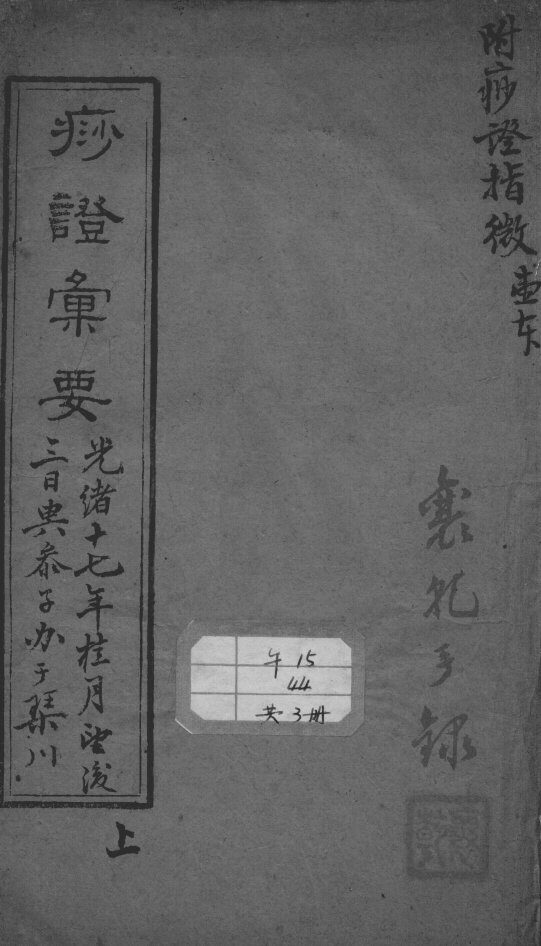 附痧證指微壹本
痧證彙要
光緒十七年桂月望後
三日典泰子办于琴川
上
手錄
午 15
44
共 3 册